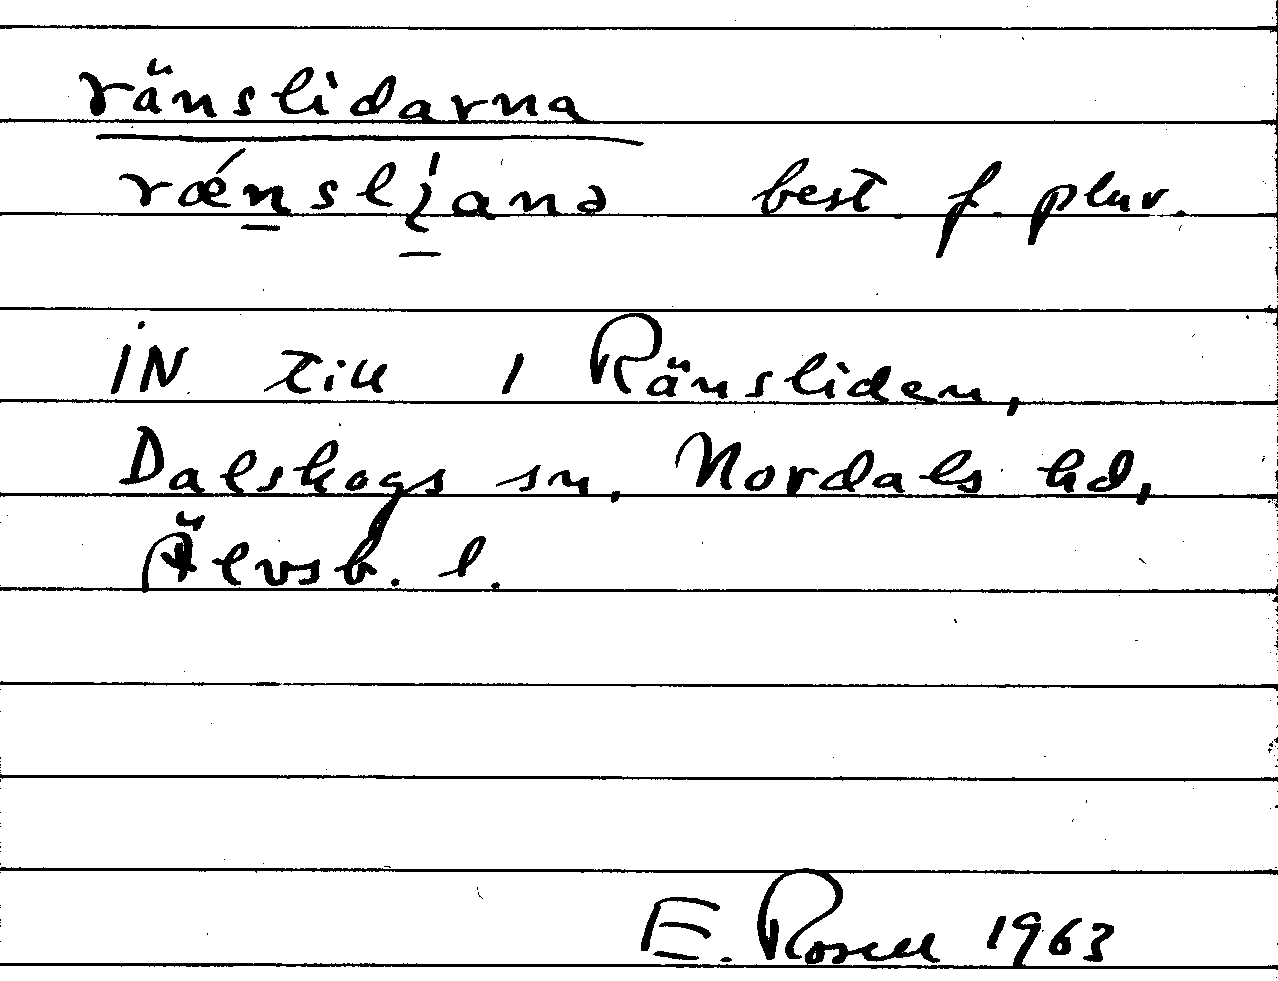 ränslidarna
rǽnslį̀anə best. f. plur.
IN till 1 Ränsliden,
Dalskogs sn, Nordals hd,
Älvsb. l.
E. Rosell 1963